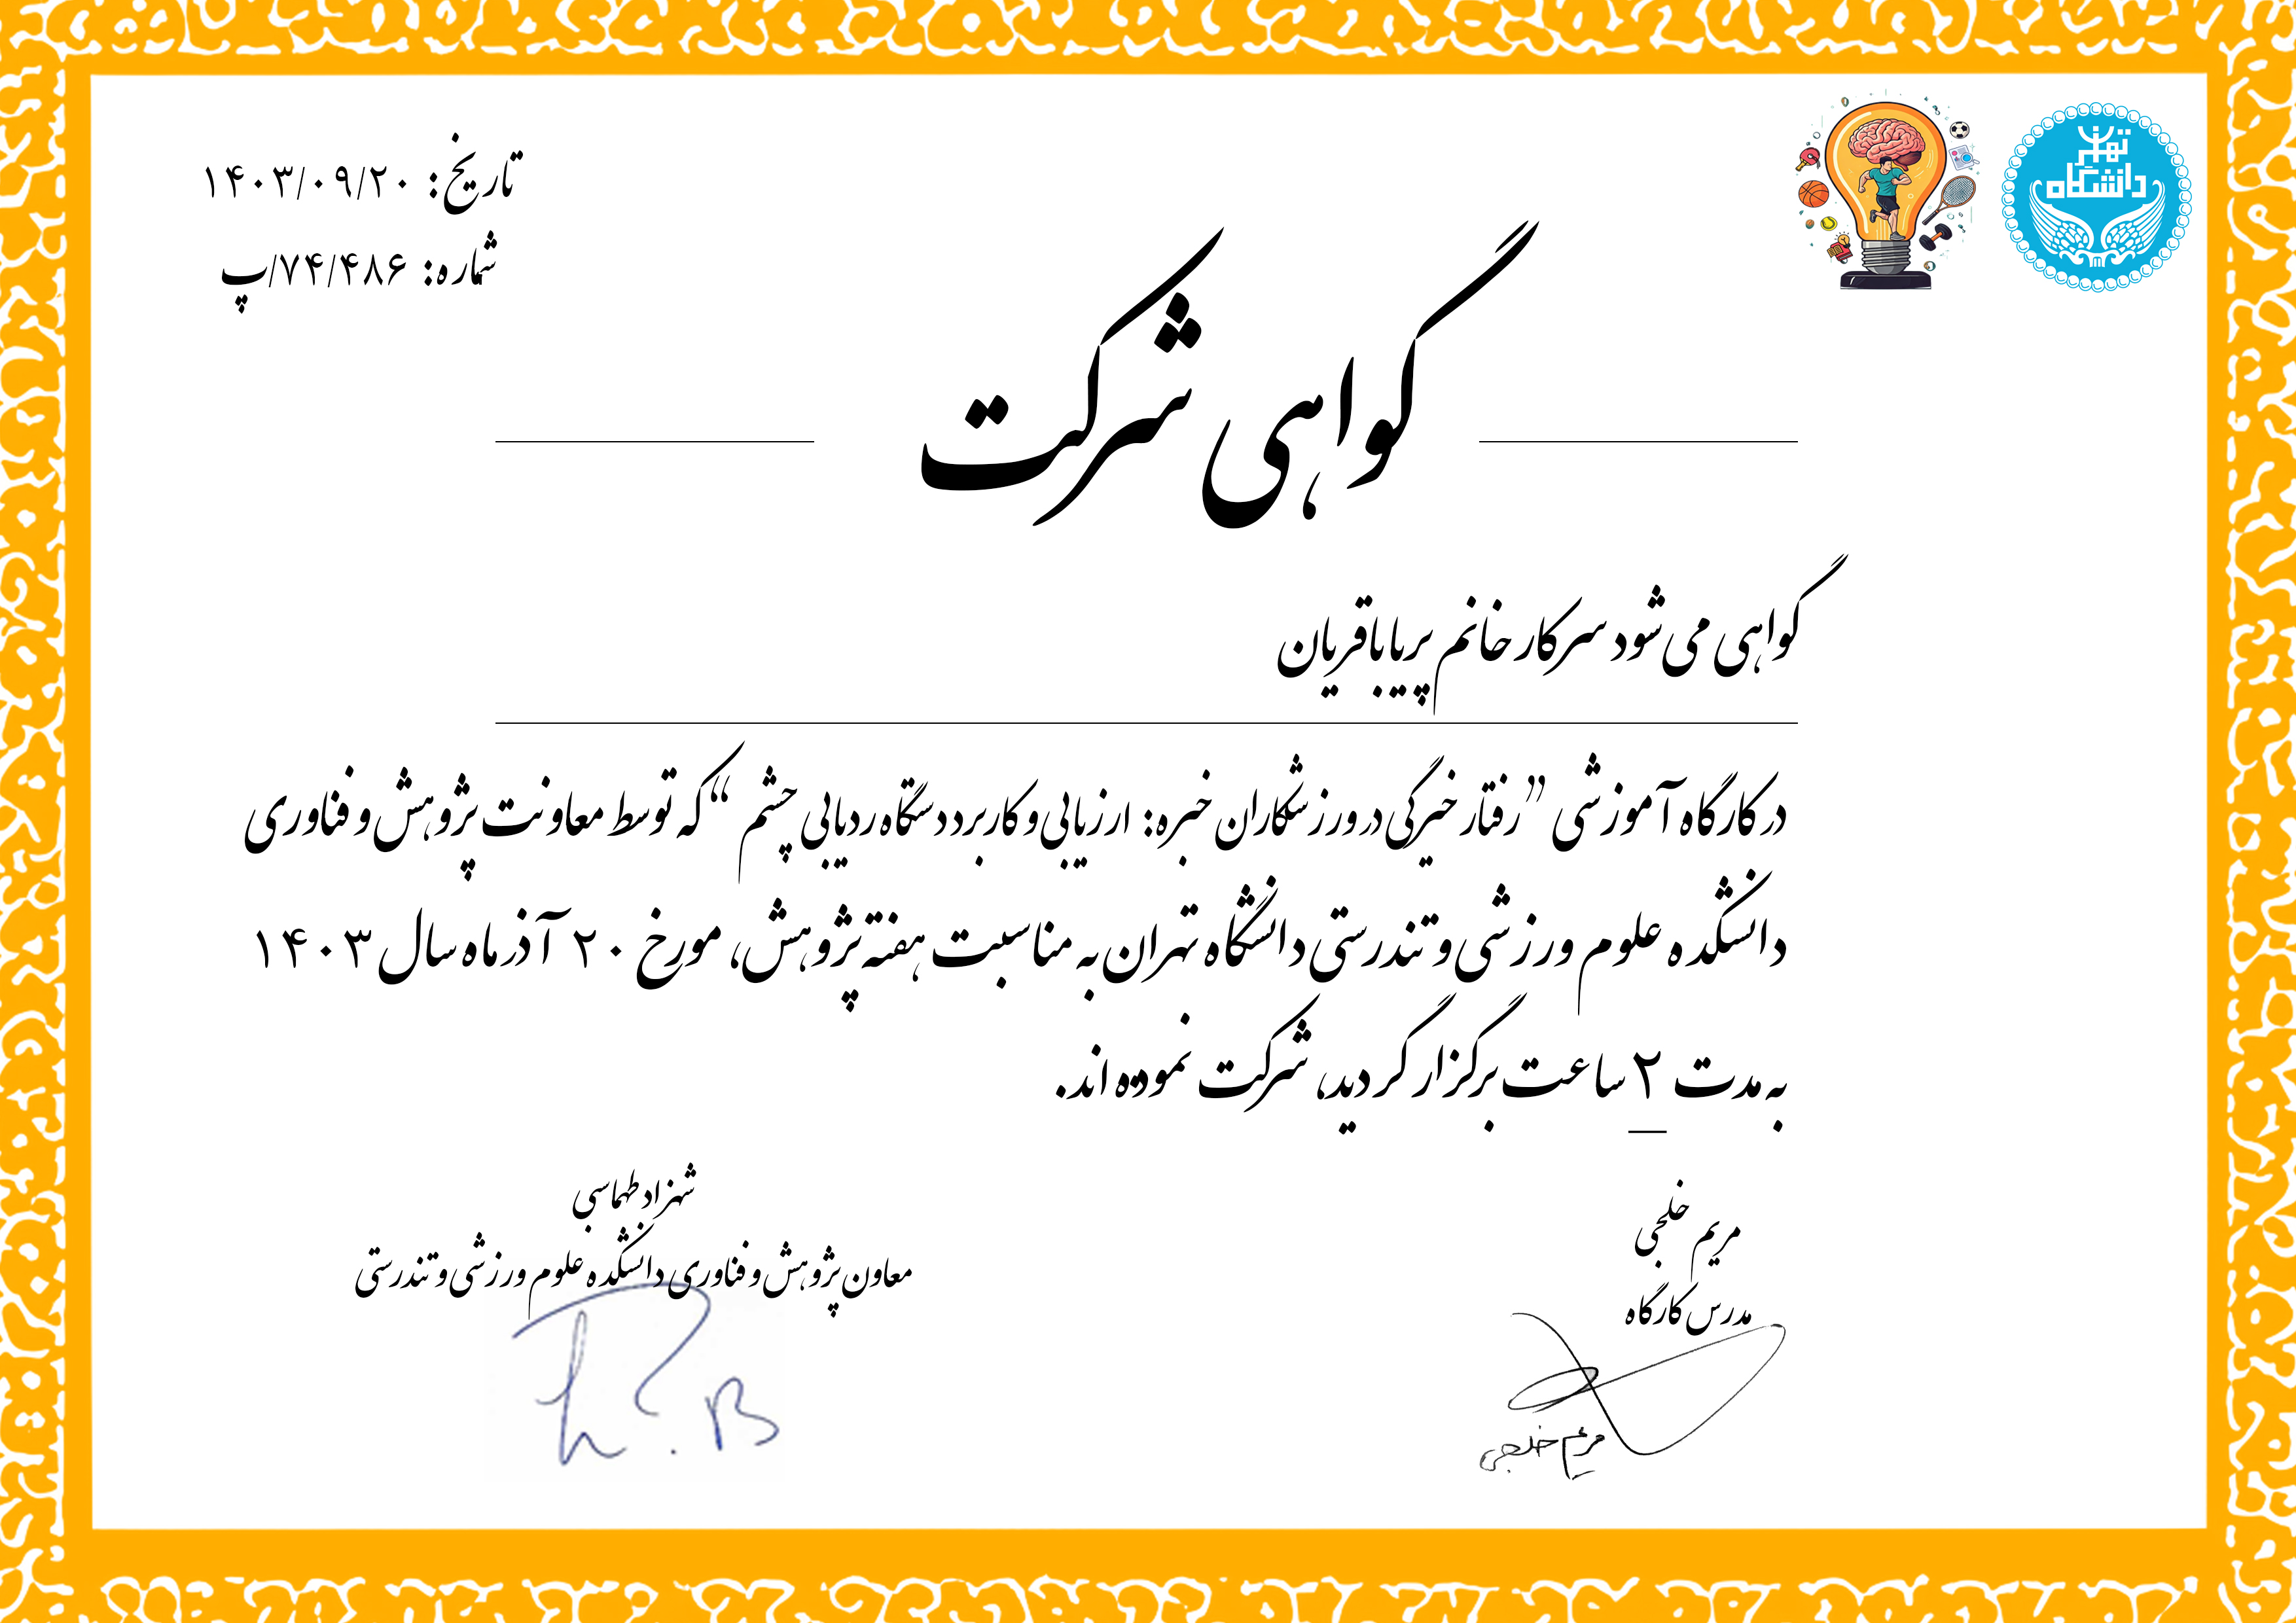 دانشگاه تهران
تاریخ: ۱۴۰۳/۰۹/۲۰
شماره: ۷۴/۴۸۶/پ
گواهی شرکت
گواهی می شود سرکار خانم پریا باقریان
در کارگاه آموزشی ”رفتار خیرگی در ورزشکاران خبره: ارزیابی و کاربرد دستگاه ردیابی چشم “ که توسط معاونت پژوهش و فناوری
دانشکده علوم ورزشی و تندرستی دانشگاه تهران به مناسبت هفته پژوهش، مورخ ۲۰ آذر ماه سال ۱۴۰۳
به مدت ۲ ساعت برگزار گردید، شرکت نموده اند.
مریم خلجی
مدرس کارگاه
مریم خلجی
شهزاد طهماسبی
معاون پژوهش و فناوری دانشکده علوم ورزشی و تندرستی